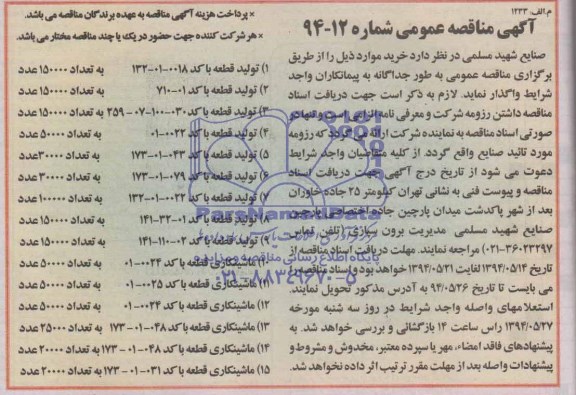 م.الف. ۱۲۳۳
آگهی مناقصه عمومی شماره ۱۲-۹۴
صنایع شهید مسلمی در نظر دارد خرید موارد ذیل را از طریق
برگزاری مناقصه عمومی به طور جداگانه به پیمانکاران واجد
شرایط واگذار نماید. لازم به ذکر است جهت دریافت اسناد
مناقصه داشتن رزومه شرکت و معرفی نامه الزامی است و تنها در
صورتی اسناد مناقصه به نماینده شرکت ارائه می گردد که رزومه
مورد تائید صنایع واقع گردد. از کلیه متقاضیان واجد شرایط
دعوت می شود از تاریخ درج آگهی جهت دریافت اسناد
مناقصه و پیوست فنی به نشانی تهران کیلومتر ۲۵ جاده خاوران
بعد از شهر پاکدشت میدان پارچین جاده اختصاصی پارچین
صنایع شهید مسلمی مدیریت برون سپاری (تلفن تماس
۳۶۰۲۲۲۹۷-۰۲۱) مراجعه نمایند. مهلت دریافت اسناد مناقصه از
تاریخ ۱۳۹۴/۰۵/۱۴ لغایت ۱۳۹۴/۰۵/۲۱ خواهد بود و اسناد مناقصه را
می بایست تا تاریخ ۹۴/۰۵/۲۶ به آدرس مذکور تحویل نمایند.
استعلامهای واصله واجد شرایط در روز سه شنبه مورخه
۱۳۹۴/۰۵/۲۷ راس ساعت ۱۴ بازگشائی و بررسی خواهد شد. به
پیشنهادهای فاقد امضاء، مهر یا سپرده معتبر، مخدوش و مشروط و
پیشنهادات واصله بعد از مهلت مقرر ترتیب اثر داده نخواهد شد.
× پرداخت هزینه آگهی مناقصه به عهده برندگان مناقصه می باشد.
× هر شرکت کننده جهت حضور در یک یا چند مناقصه مختار می باشد.
۱) تولید قطعه با کد ۰۰۱۸-۰۱-۱۳۲ به تعداد ۱۵۰۰۰۰ عدد
۲) تولید قطعه با کد ۰۱-۷۱۰ به تعداد ۱۵۰۰۰۰ عدد
۳) تولید قطعه با کد ۰۳۰-۱۰۰-۰۷-۲۵۹ به تعداد ۱۵۰۰۰۰ عدد
۴) تولید قطعه با کد ۰۰۲۲-۰۱ به تعداد ۵۰۰۰۰ عدد
۵) تولید قطعه با کد ۰۴۳-۰۱-۱۷۳ به تعداد ۳۰۰۰۰ عدد
۶) تولید قطعه با کد ۰۷۹-۰۱-۱۷۳ به تعداد ۳۰۰۰۰ عدد
۷) تولید قطعه با کد ۰۰۲۲-۰۱-۱۳۲ به تعداد ۱۰۰۰۰۰ عدد
۸) تولید قطعه با کد ۰۱-۳۲-۱۴۱
۹) تولید قطعه با کد ۰۲-۱۱۰-۱۴۱
۱۰) ماشینکاری قطعه با کد ۰۰۲۴-۰۱ به تعداد ۵۰۰۰۰ عدد
۱۱) ماشینکاری قطعه با کد ۰۰۲۵-۰۱ عدد
۱۲) ماشینکاری قطعه با کد ۰۰۲۴-۰۱ به تعداد ۵۰۰۰۰ عدد
۱۳) ماشینکاری قطعه با کد ۰۴۸-۰۱-۱۷۳ به تعداد ۲۵۰۰۰ عدد
۱۴) ماشینکاری قطعه با کد ۰۴۸-۰۱-۱۷۳ به تعداد ۲۰۰۰۰ عدد
۱۵) ماشینکاری قطعه با کد ۰۳۱-۰۱-۱۷۳ به تعداد ۲۰۰۰۰ عدد
ParsNamadData
پایگاه اطلاع رسانی مناقصه و مزایده
۰۲۱-۸۸۳۴۹۶۷۰-۵